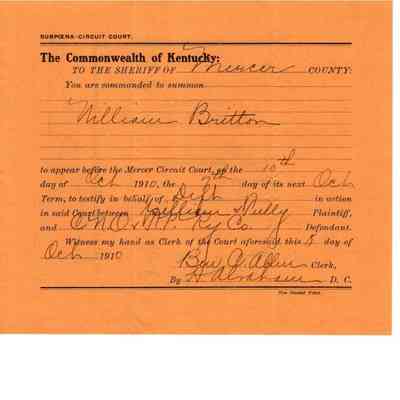 SUBPOENA-CIRCUIT COURT.
The Commonwealth of Kentucky:
TO THE SHERIFF OF Mercer COUNTY:
You are commanded to summon
William Britton
to appear before the Mercer Circuit Court, on the 10th
day of Oct 1910, the 7th day of its next Oct
Term, to testify in behalf of Deft in action
in said Court between Plaintiff,
and C N O & T P Ry Co Defendant.
Witness my hand as Clerk of the Court aforesaid, this 5 day of
Oct 1910
Ben C. Allin Clerk,
By D. C.